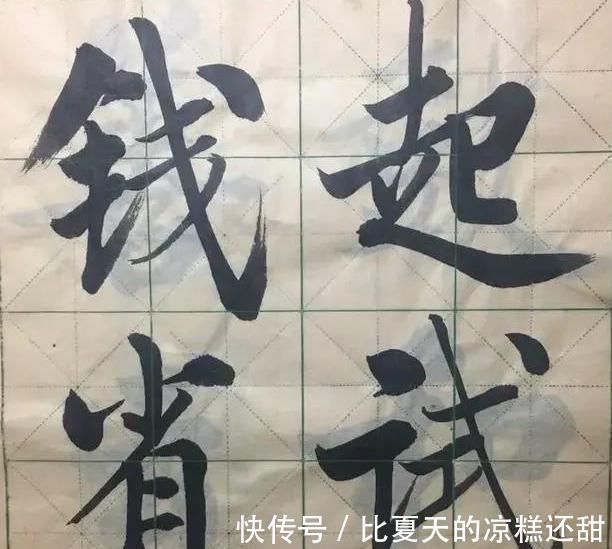 钱起
省试
快传号 / 比夏天的凉糕还甜